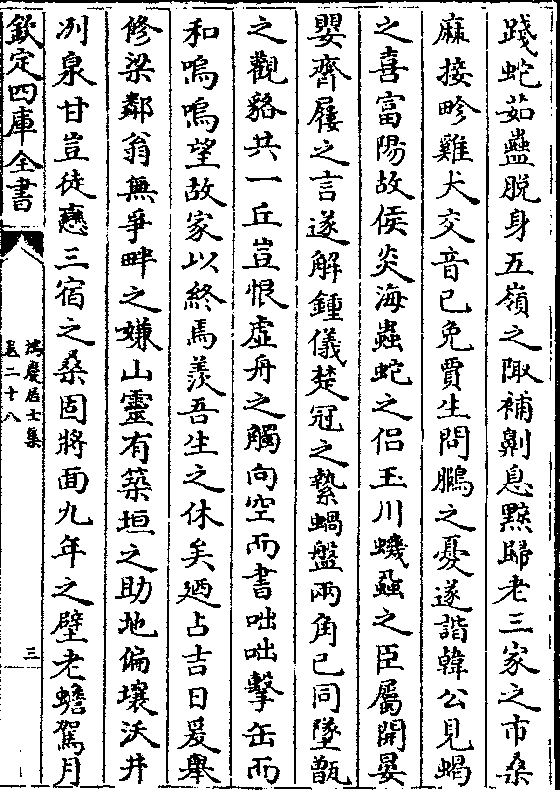 踐蛇茹蠱脱身五嶺之陬補劓息黥歸老三家之市桑
麻接畛雞犬交音已免賈生問鵩之憂遂諧韓公見蝎
之喜富陽故侯炎海蟲蛇之侣玉川蟣蝨之臣屬開晏
嬰齊屨之言遂解鍾儀楚冠之縶蝸盤兩角已同墜甑
之觀貉共一丘豈恨虚舟之觸向空而書咄咄擊缶而
和嗚嗚望故家以終焉羡吾生之休矣廼占吉日爰舉
修梁鄰翁無爭畔之嫌山靈有築垣之助地偏壤沃井
冽泉甘豈徒戀三宿之桑固將面九年之壁老蟾駕月
欽定四庫全書
鴻慶居士集
卷二十八
三